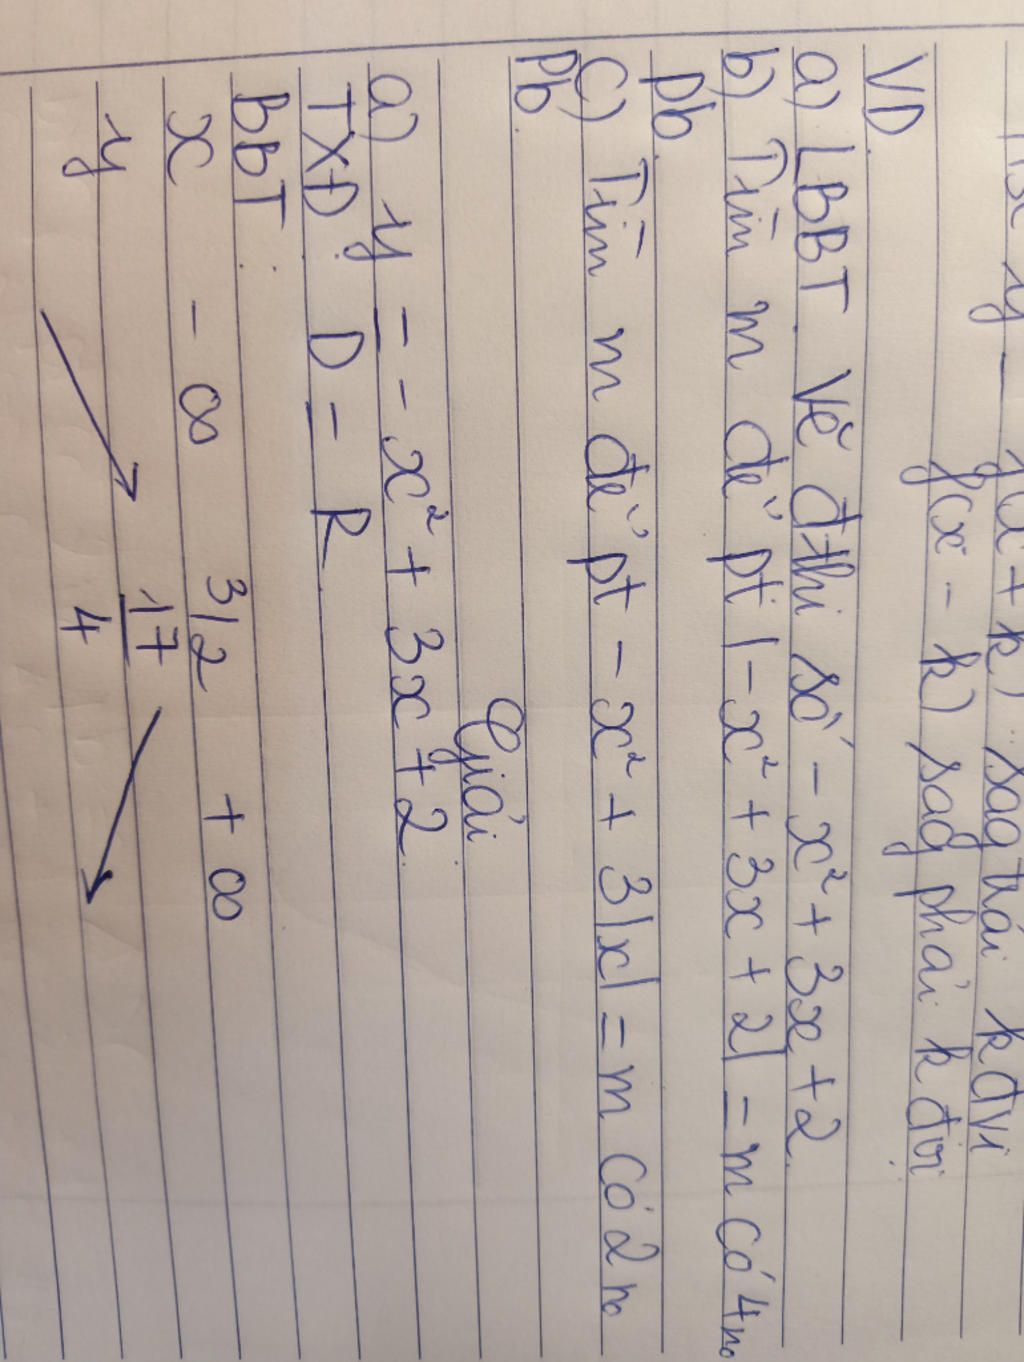 y = f(x + k) sag trái k đvi
f(x - k) sag phải k đvi
VD.
a) LBBT. Vẽ đthi số - x² + 3x + 2.
b) Tìm m để pt |-x² + 3x + 2| = m có 4 no
pb.
c) Tìm m để pt - x² + 3|x| = m có 2 no
pb.
Giải
a) y = - x² + 3x + 2.
TXĐ: D = R
BBT:
x - ∞ 3/2 + ∞
y 17/4